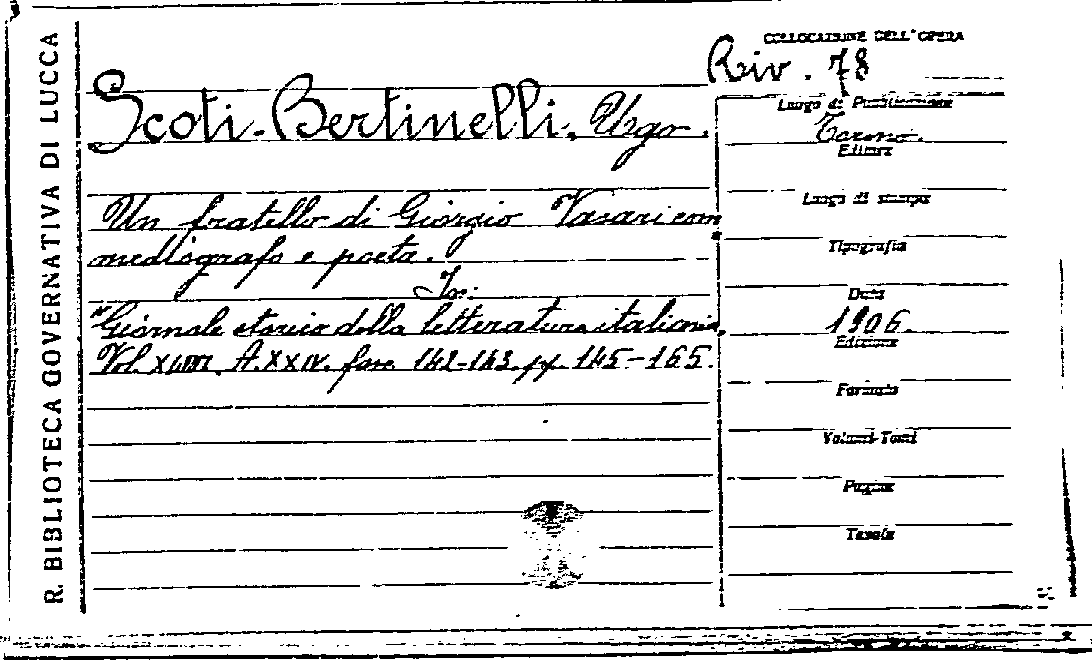 R. BIBLIOTECA GOVERNATIVA DI LUCCA
COLLOCAZIONE DELL'OPERA
Riv. 78
Scoti-Bertinelli, Ugo.
Un fratello di Giorgio Vasari com
mediografo e poeta.
In:
"Giornale storico della letteratura italiana,
Vol. XLVIII. A. XXIV. fasc. 142-143. pp. 145-165.
Luogo di Pubblicazione
Torino.
Editore
Luogo di stampa
Tipografia
Data
1906.
Edizione
Formato
Volumi-Tomi
Pagine
Tavole